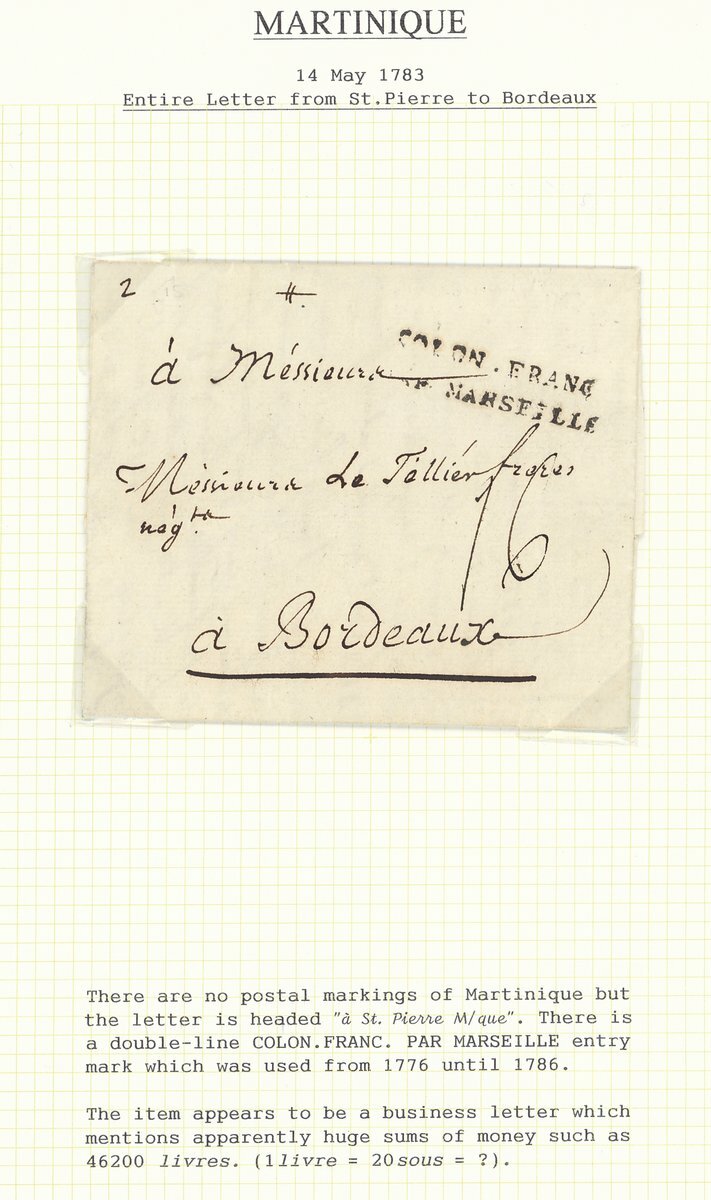 MARTINIQUE
14 May 1783
Entire Letter from St.Pierre to Bordeaux
2
à Méssieurs
COLON. FRANC
AR MARSEILLE
Méssieurs Le Téllier freres
nég.ts
16
à Bordeaux
There are no postal markings of Martinique but
the letter is headed "à St. Pierre M/que". There is
a double-line COLON.FRANC. PAR MARSEILLE entry
mark which was used from 1776 until 1786.
The item appears to be a business letter which
mentions apparently huge sums of money such as
46200 livres. (1livre = 20sous = ?).